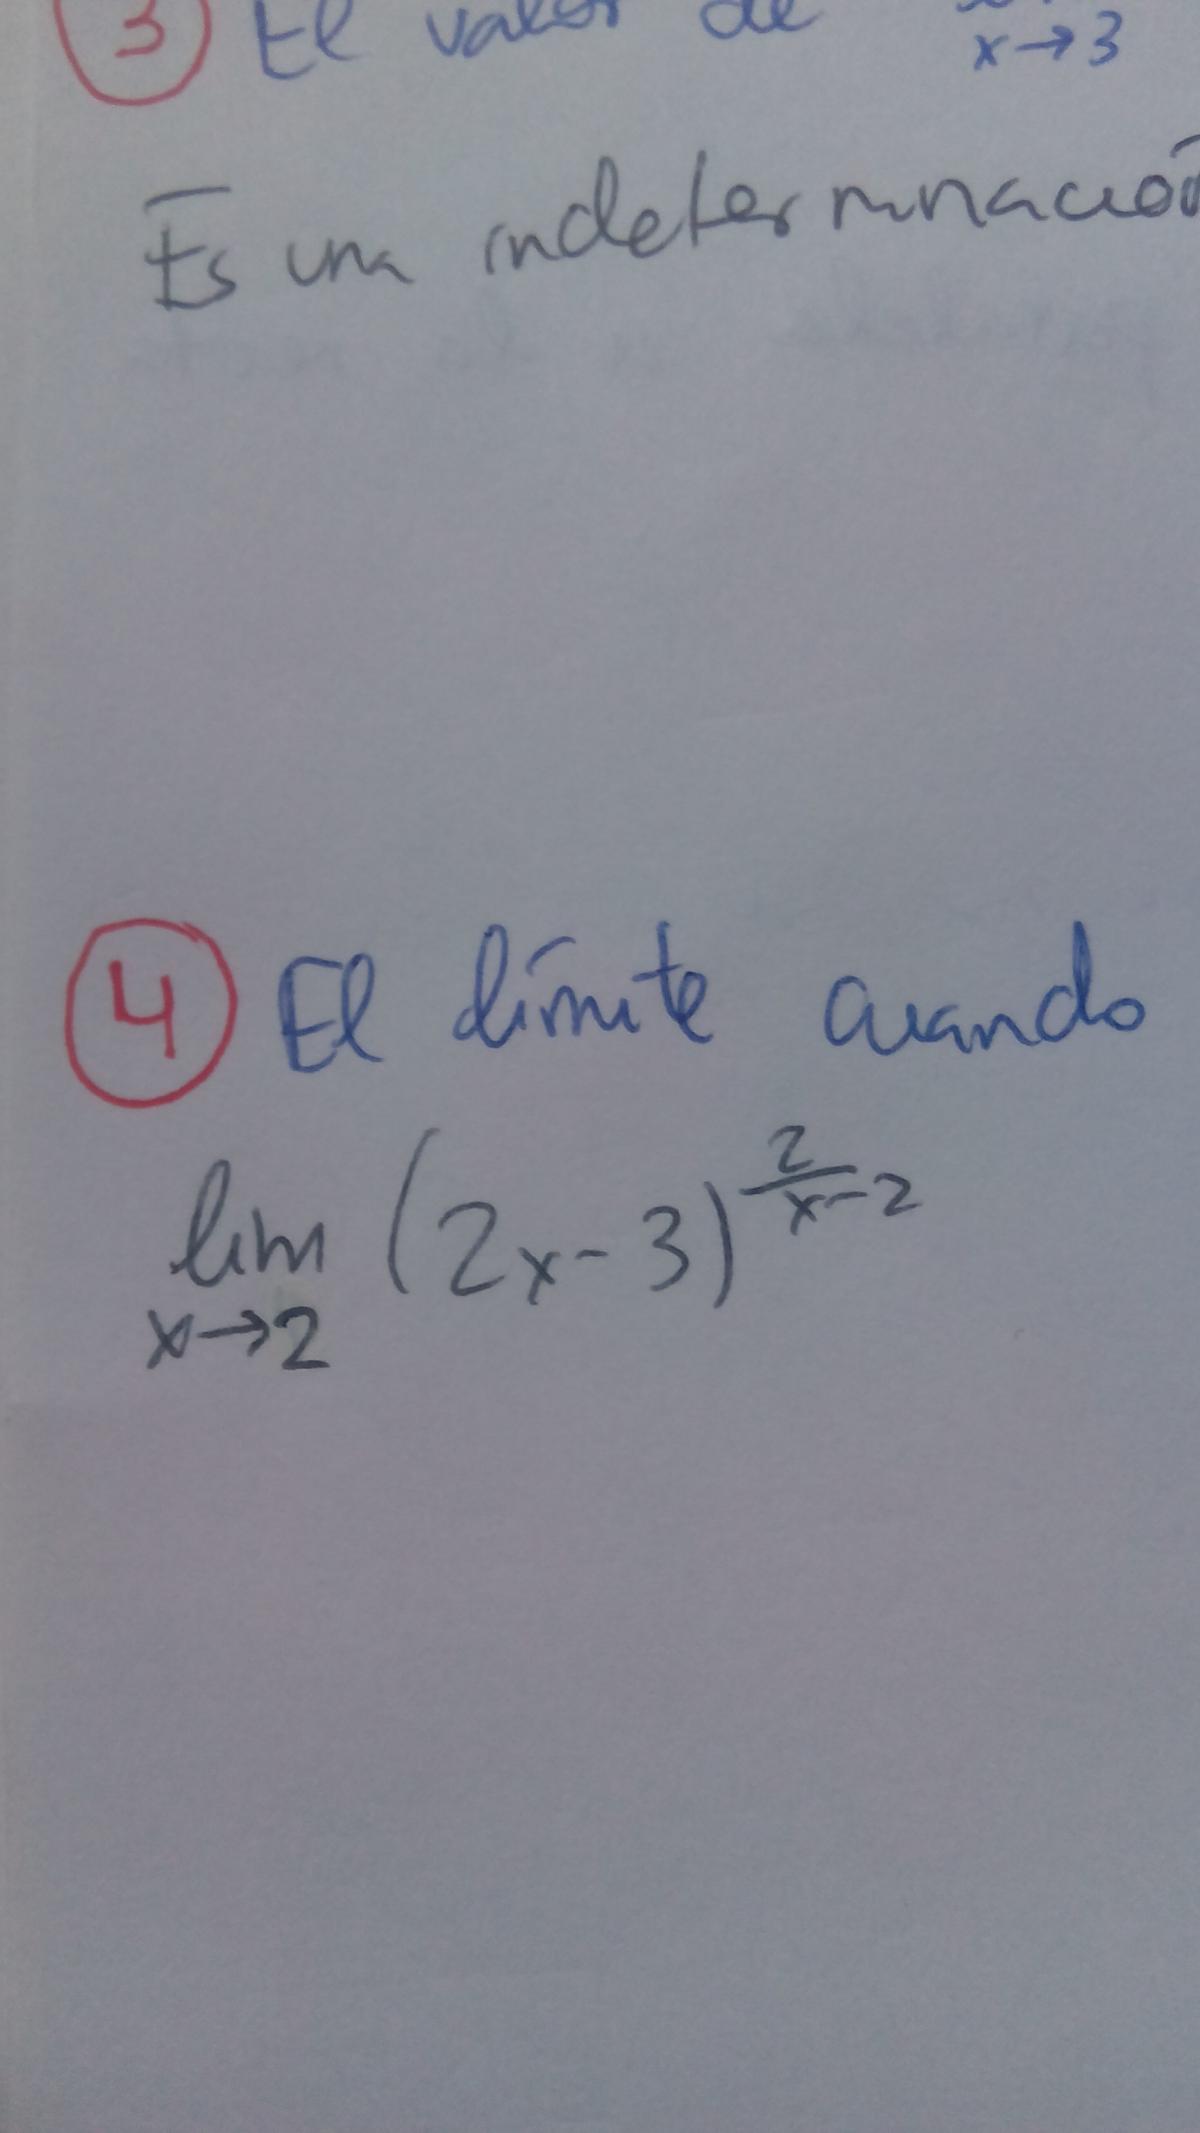 3 El valor de
x→3
Es una indeterminación
4 El límite cuando
lim (2x-3)^(2/(x-2))
x→2